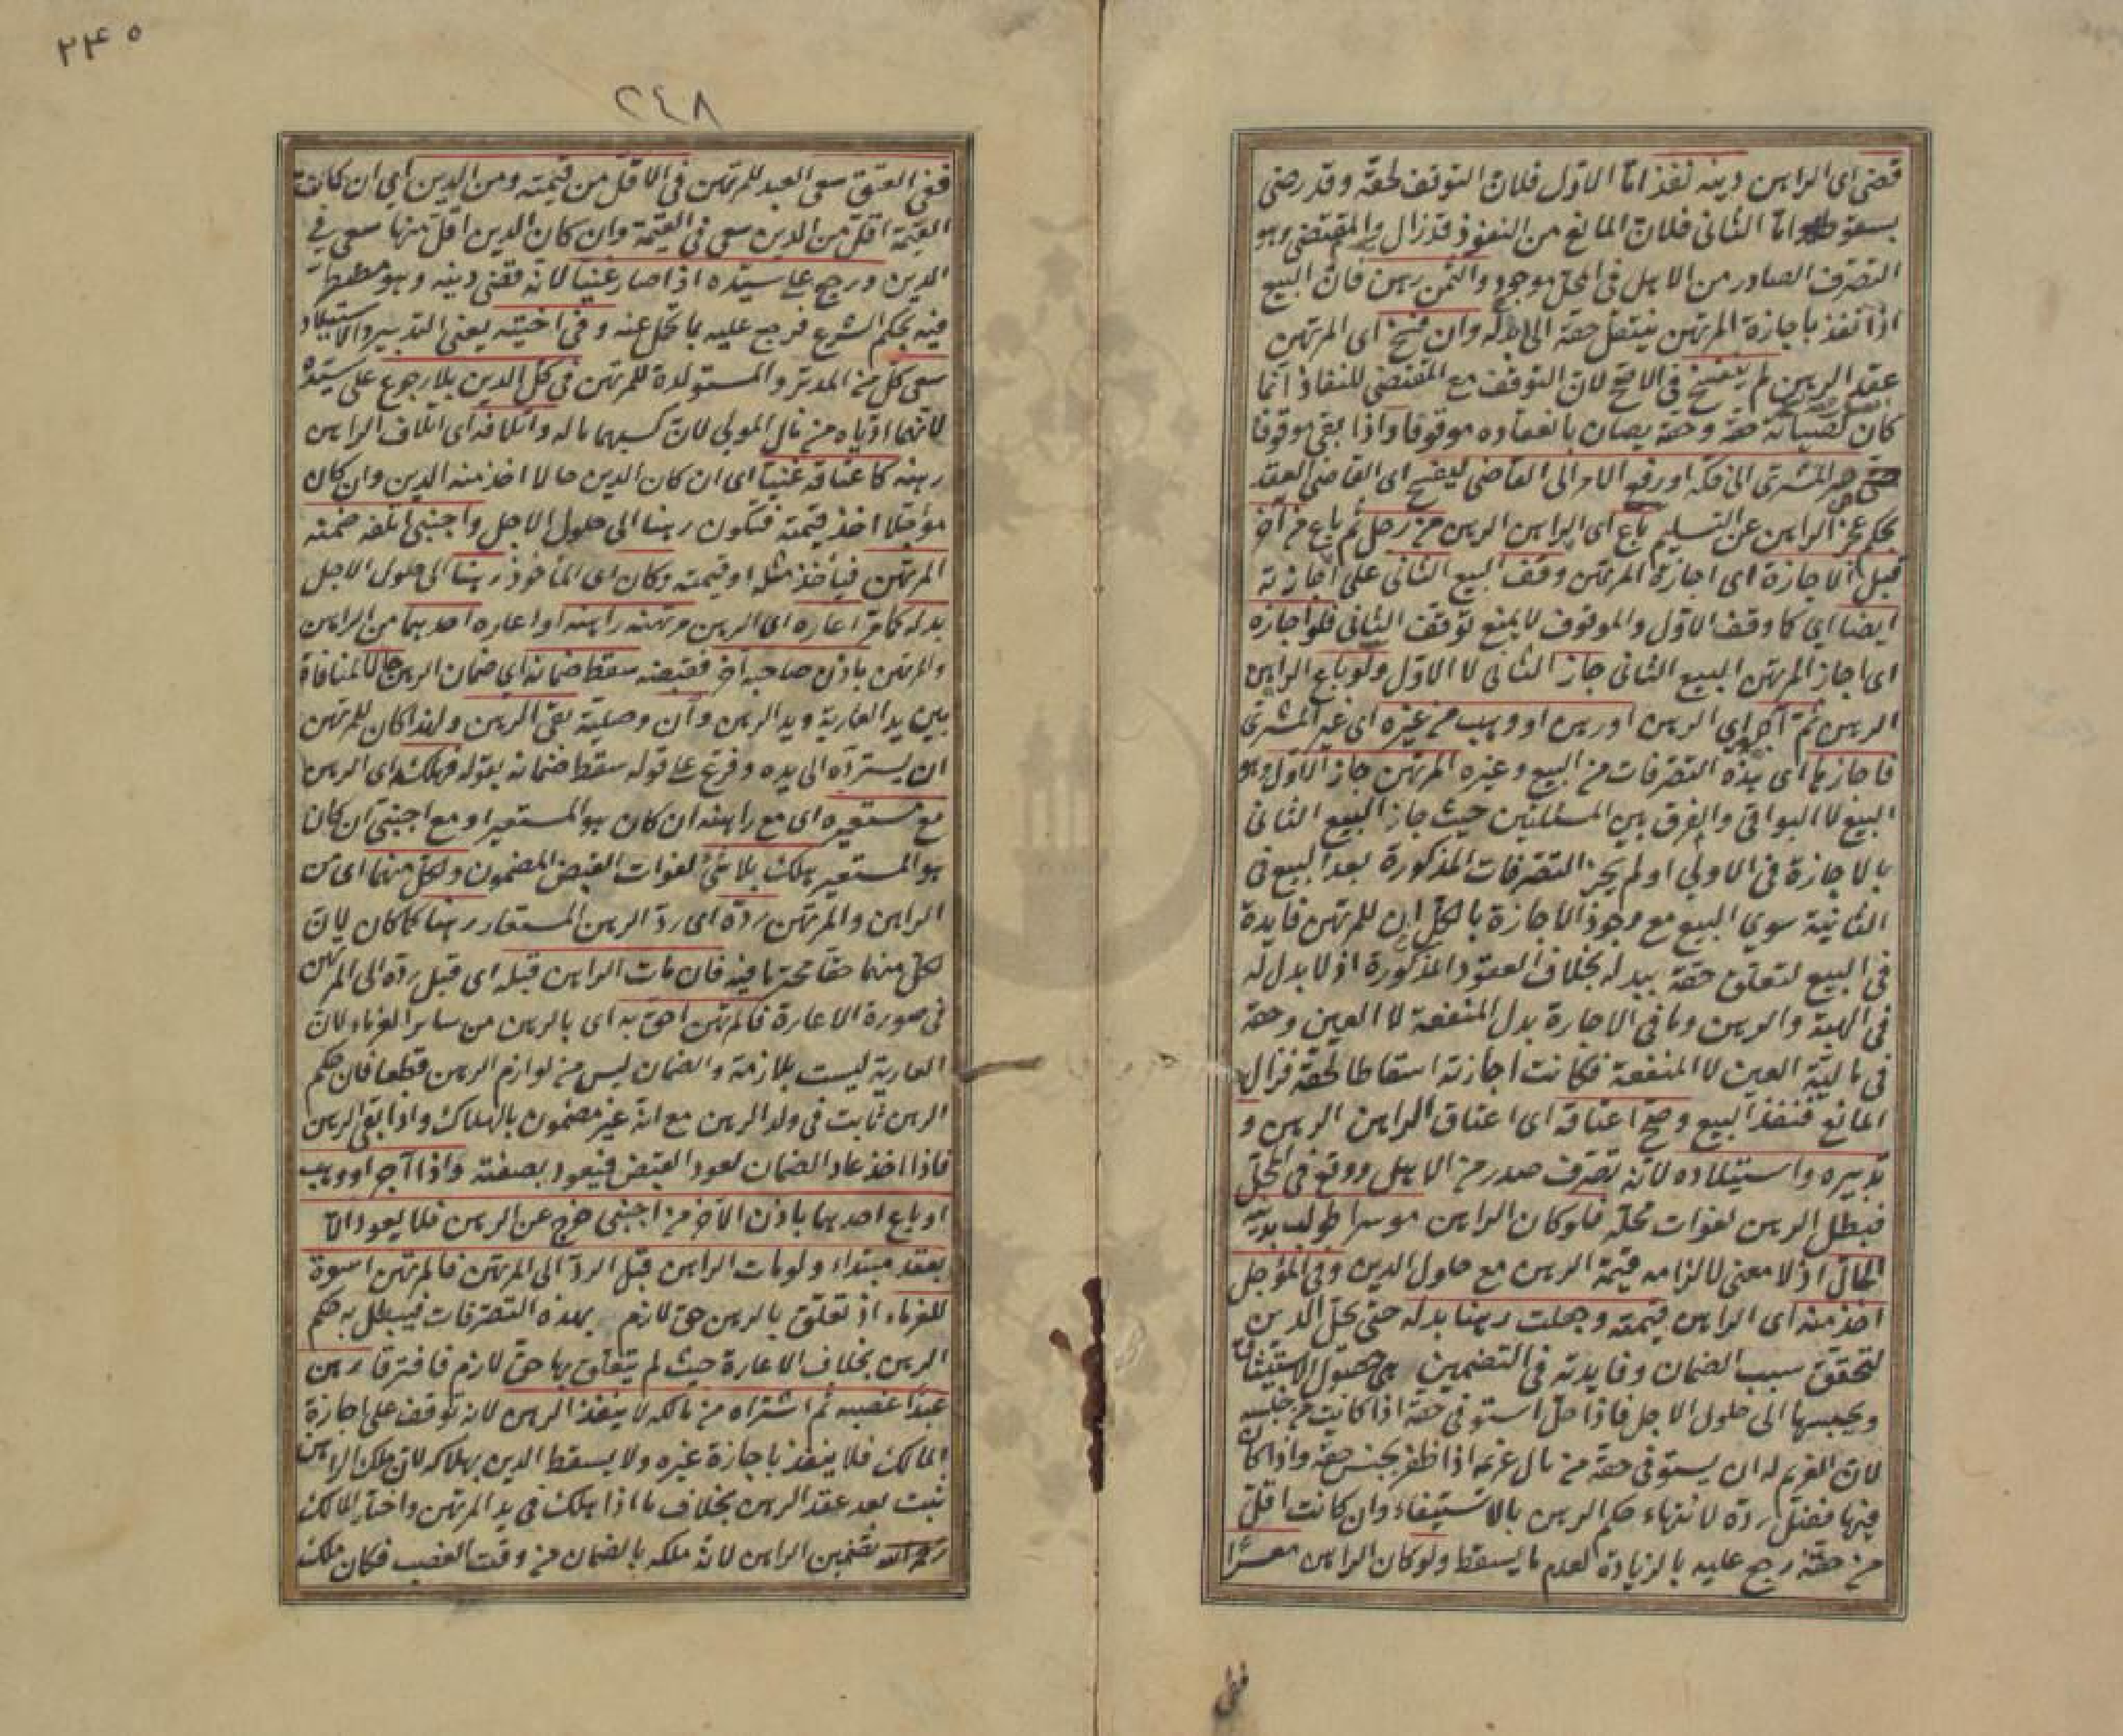 قضى اى الراهن دينه نفذ اما الاول فلان التوقف لحقه وقد رضى
بسقوطه اما الثانى فلان المانع من النفوذ قد زال والمقتضى وهو
التصرف الصادر من الاهل فى المحل موجود والثمن رهن فان البيع
اذا نفذ باجازة المرتهن ينتقل حقه الى بدله وان فسخ اى المرتهن
عقد الرهن لم ينفسخ فى الاصح لان التوقف مع المقتضى للنفاذ انما
كان لصيانة حقه وحقه يصان بانعقاده موقوفا واذا بقى موقوفا
صبر المشترى الى فكه او رفع الامر الى القاضى ليفسخ اى القاضى العقد
بحكم عجز الراهن عن التسليم باع اى الراهن الرهن من رجل ثم باع من آخر
قبل الاجازة اى اجازة المرتهن وقف البيع الثانى على اجازته
ايضا اى كما وقف الاول والموقوف لا يمنع توقف الثانى فلو اجازه
اى اجاز المرتهن البيع الثانى جاز الثانى لا الاول ولو باع الراهن
الرهن ثم آجر اى الرهن او رهن او وهب من غيره اى غير المشترى
فاجازها اى هذه التصرفات من البيع وغيره المرتهن جاز الاول وهو
البيع لا البواقى والفرق بين المسئلتين حيث جاز البيع الثانى
بالاجازة فى الاولى او لم يجز التصرفات المذكورة بعد البيع فى
الثانية سوى البيع مع وجود الاجازة بالكل ان للمرتهن فايدة
فى البيع لتعلق حقه ببدله بخلاف العقود المذكورة اذ لا بدل له
فى الهبة والرهن وما فى الاجارة بدل المنفعة لا العين وحقه
فى مالية العين لا المنفعة فكانت اجازته اسقاطا لحقه فزال
المانع فنفذ البيع وصح اعتاقه اى اعتاق الراهن الرهن و
تدبيره واستيلاده لانه تصرف صدر من الاهل ووقع فى المحل
فبطل الرهن لفوات محله فلو كان الراهن موسرا طولب بدينه
الحال اذ لا معنى لالزامه قيمة الرهن مع حلول الدين وفى المؤجل
اخذ منه اى الراهن قيمته وجعلت رهنا بدله حتى يحل الدين
لتحقق سبب الضمان وفايدته فى التضمين هى حصول الاستيثاق
ويحبسها الى حلول الاجل فاذا حل استوفى حقه اذا كانت من جنسه
لان الغريم له ان يستوفى حقه من مال غريمه اذا ظفر بجنس حقه واذا كان
فيها فضل رده لانتهاء حكم الرهن بالاستيفاء وان كانت اقل
من حقه رجع عليه بالزيادة لعدم ما يسقط ولو كان الراهن معسرا
ففى
٢٤٥
٢٤٨
ففى العتق سعى العبد للمرتهن فى الاقل من قيمته ومن الدين اى ان كانت
القيمة اقل من الدين سعى فى القيمة وان كان الدين اقل منها سعى فى
الدين ورجع على سيده اذا صار غنيا لانه قضى دينه وهو مضطر
فيه بحكم الشرع فرجع عليه بما تحمل عنه وفى اختيه يعنى التدبير والاستيلاد
سعى كل من المدبر والمستولدة للمرتهن فى كل الدين بلا رجوع على سيده
لانهما ادياه من مال المولى لان كسبهما ماله واتلافه اى اتلاف الراهن
رهنه كاعتاقه غنيا اى ان كان الدين حالا اخذ منه الدين وان كان
مؤجلا اخذ قيمته فتكون رهنا الى حلول الاجل واجنبى اتلفه ضمنه
المرتهن فيأخذ مثله او قيمته وكان اى المأخوذ رهنا الى حلول الاجل
بدله كما مر اعاره اى الرهن مرتهنه راهنه او اعاره احدهما من الراهن
والمرتهن باذن صاحبه آخر فقبضه سقط ضمانه اى ضمان الرهن حالا لمنافاة
بين يد العارية ويد الرهن وان وصلية بقى الرهن ولهذا كان للمرتهن
ان يسترده الى يده وفرع على قوله سقط ضمانه بقوله فهلكه اى الرهن
مع مستعيره اى مع راهنه ان كان هو المستعير او مع اجنبى ان كان
هو المستعير هلك بلا شئ لفوات القبض المضمون ولكل منهما اى من
الراهن والمرتهن رده اى رد الرهن المستعار رهنا كما كان لان
لكل منهما حقا محترما فيه فان مات الراهن قبله اى قبل رده الى المرتهن
فى صورة الاعارة فالمرتهن احق به اى بالرهن من ساير الغرماء لان
العارية ليست بلازمة والضمان ليس من لوازم الرهن قطعا فان حكم
الرهن ثابت فى ولد الرهن مع انه غير مضمون بالهلاك واذا بقى الرهن
فاذا اخذ عاد الضمان لعود القبض فيعود بصفته واذا آجر او وهب
او باع احدهما باذن الآخر من اجنبى خرج عن الرهن فلا يعود الا
بعقد مبتداء ولو مات الراهن قبل الرد الى المرتهن فالمرتهن اسوة
للغرماء اذ تعلق بالرهن حق لازم بهذه التصرفات فيبطل به حكم
الرهن بخلاف الاعارة حيث لم يتعلق بها حق لازم فافترقا رهن
عبدا غصبه ثم اشتراه من مالكه لا ينفذ الرهن لانه توقف على اجازة
المالك فلا ينفذ باجازة غيره ولا يسقط الدين بهلاكه لان ملك الراهن
ثبت بعد عقد الرهن بخلاف ما اذا هلك فى يد المرتهن واختار المالك
تضمين الراهن لانه ملكه بالضمان من وقت الغصب فكان ملك